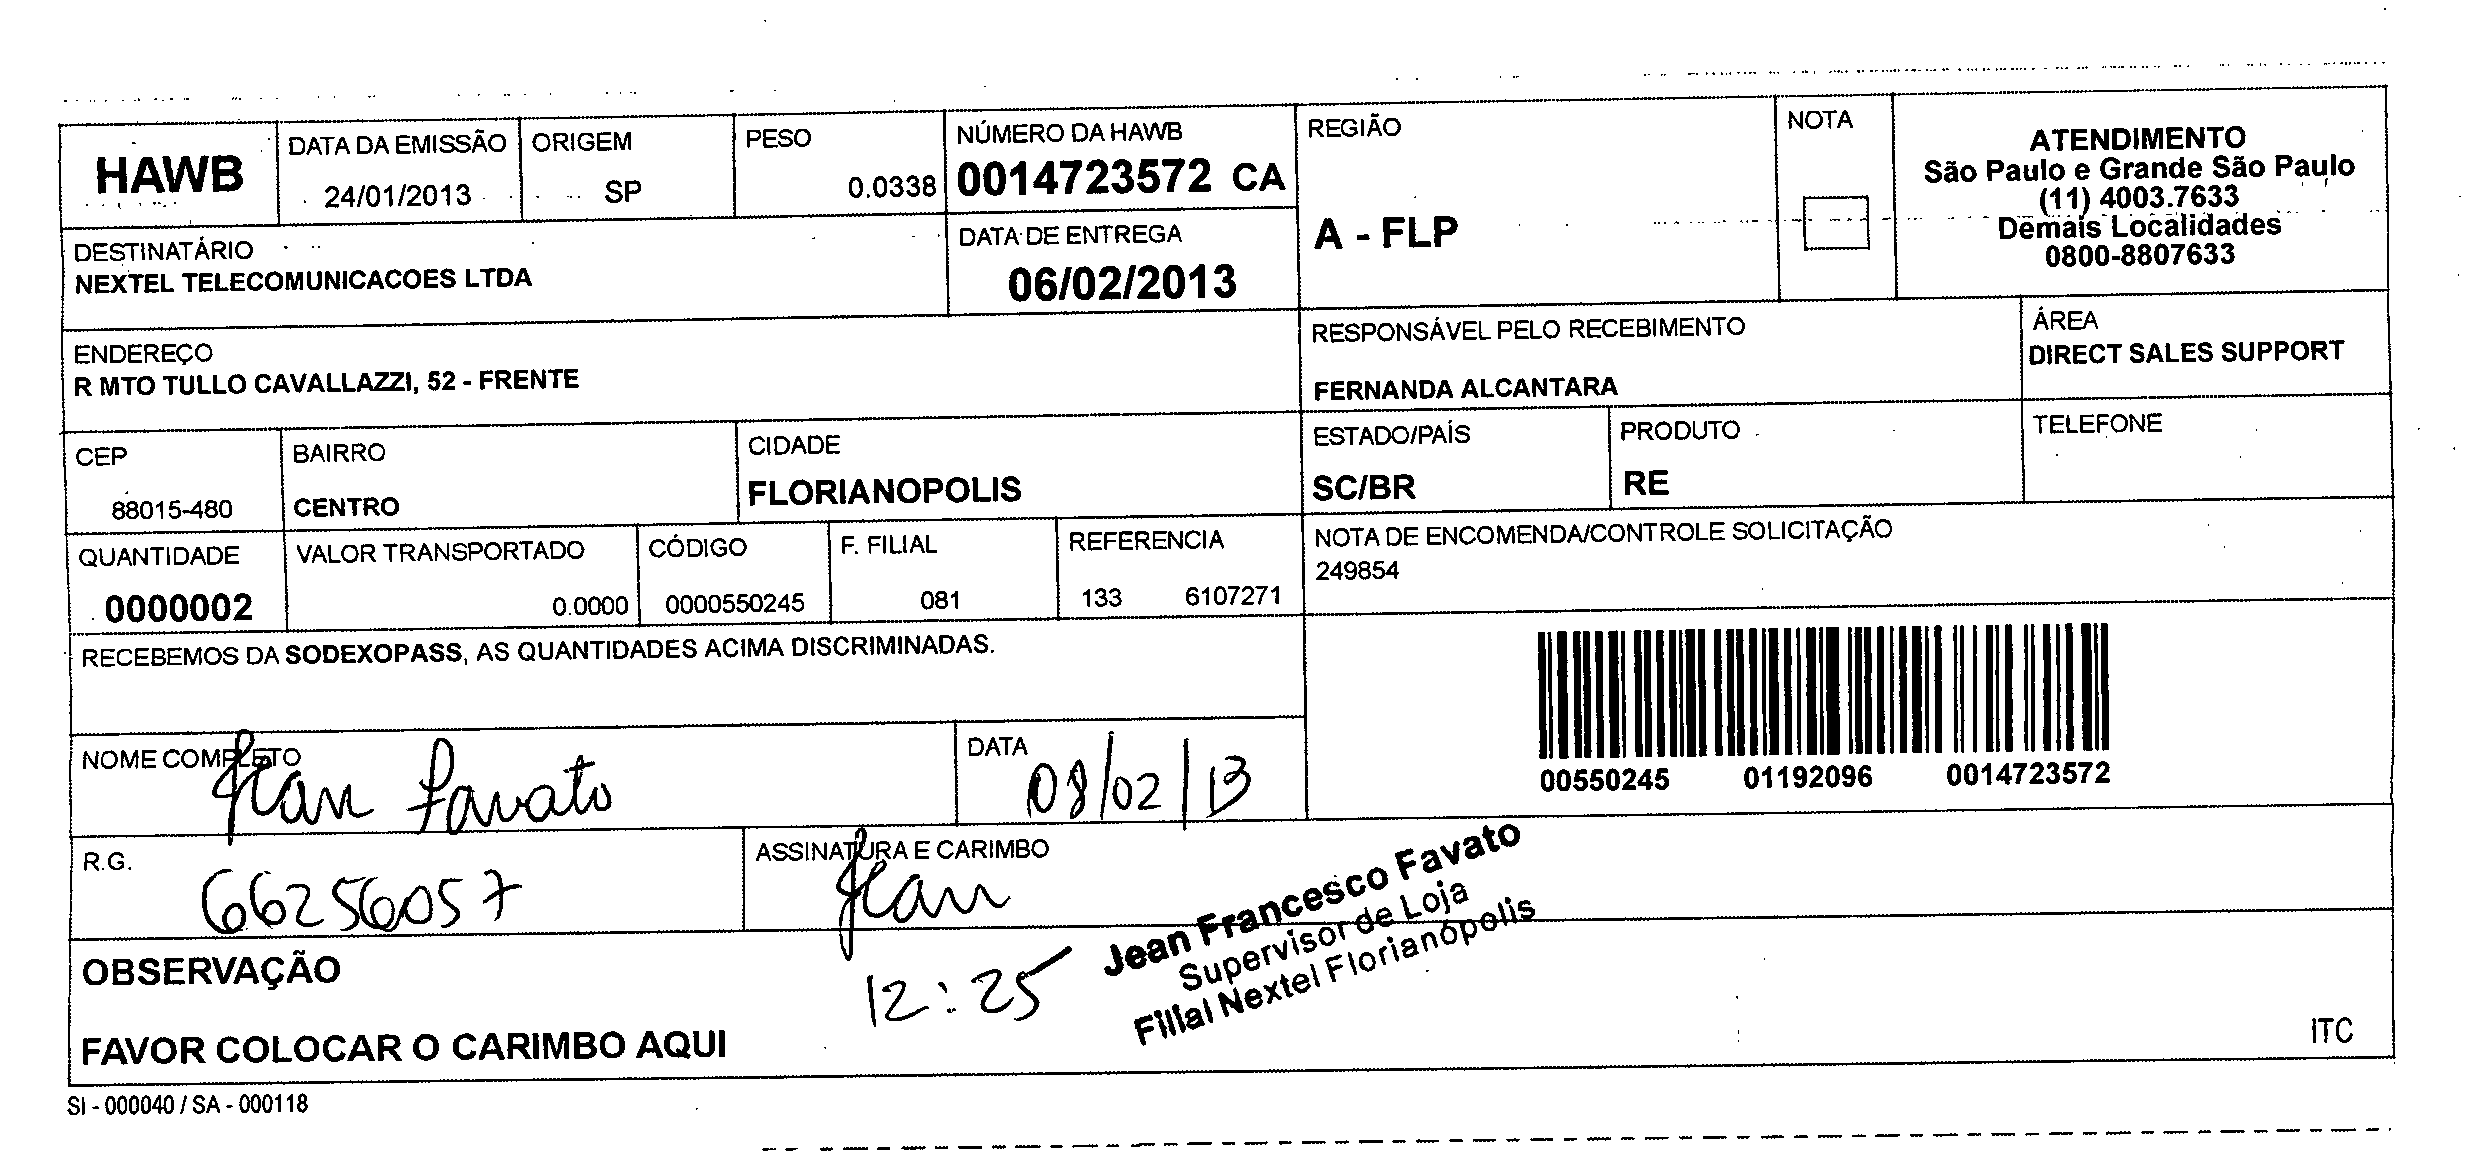 HAWB
DATA DA EMISSÃO
24/01/2013
ORIGEM
SP
PESO
0.0338
NÚMERO DA HAWB
0014723572 CA
REGIÃO
A - FLP
NOTA
ATENDIMENTO
São Paulo e Grande São Paulo
(11) 4003.7633
Demais Localidades
0800-8807633
DESTINATÁRIO
NEXTEL TELECOMUNICACOES LTDA
DATA DE ENTREGA
06/02/2013
ENDEREÇO
R MTO TULLO CAVALLAZZI, 52 - FRENTE
RESPONSÁVEL PELO RECEBIMENTO
FERNANDA ALCANTARA
ÁREA
DIRECT SALES SUPPORT
CEP
88015-480
BAIRRO
CENTRO
CIDADE
FLORIANOPOLIS
ESTADO/PAÍS
SC/BR
PRODUTO
RE
TELEFONE
QUANTIDADE
0000002
VALOR TRANSPORTADO
0.0000
CÓDIGO
0000550245
F. FILIAL
081
REFERENCIA
133 6107271
NOTA DE ENCOMENDA/CONTROLE SOLICITAÇÃO
249854
RECEBEMOS DA SODEXOPASS, AS QUANTIDADES ACIMA DISCRIMINADAS.
00550245 01192096 0014723572
NOME COMPLETO
Jean Favato
DATA
08/02/13
R.G.
66256057
ASSINATURA E CARIMBO
Jean
Jean Francesco Favato
Supervisor de Loja
Filial Nextel Florianópolis
12:25
OBSERVAÇÃO
FAVOR COLOCAR O CARIMBO AQUI
ITC
SI - 000040 / SA - 000118